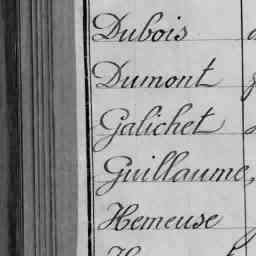 Dubois
Dumont
Galichet
Guillaume,
Hemeuse